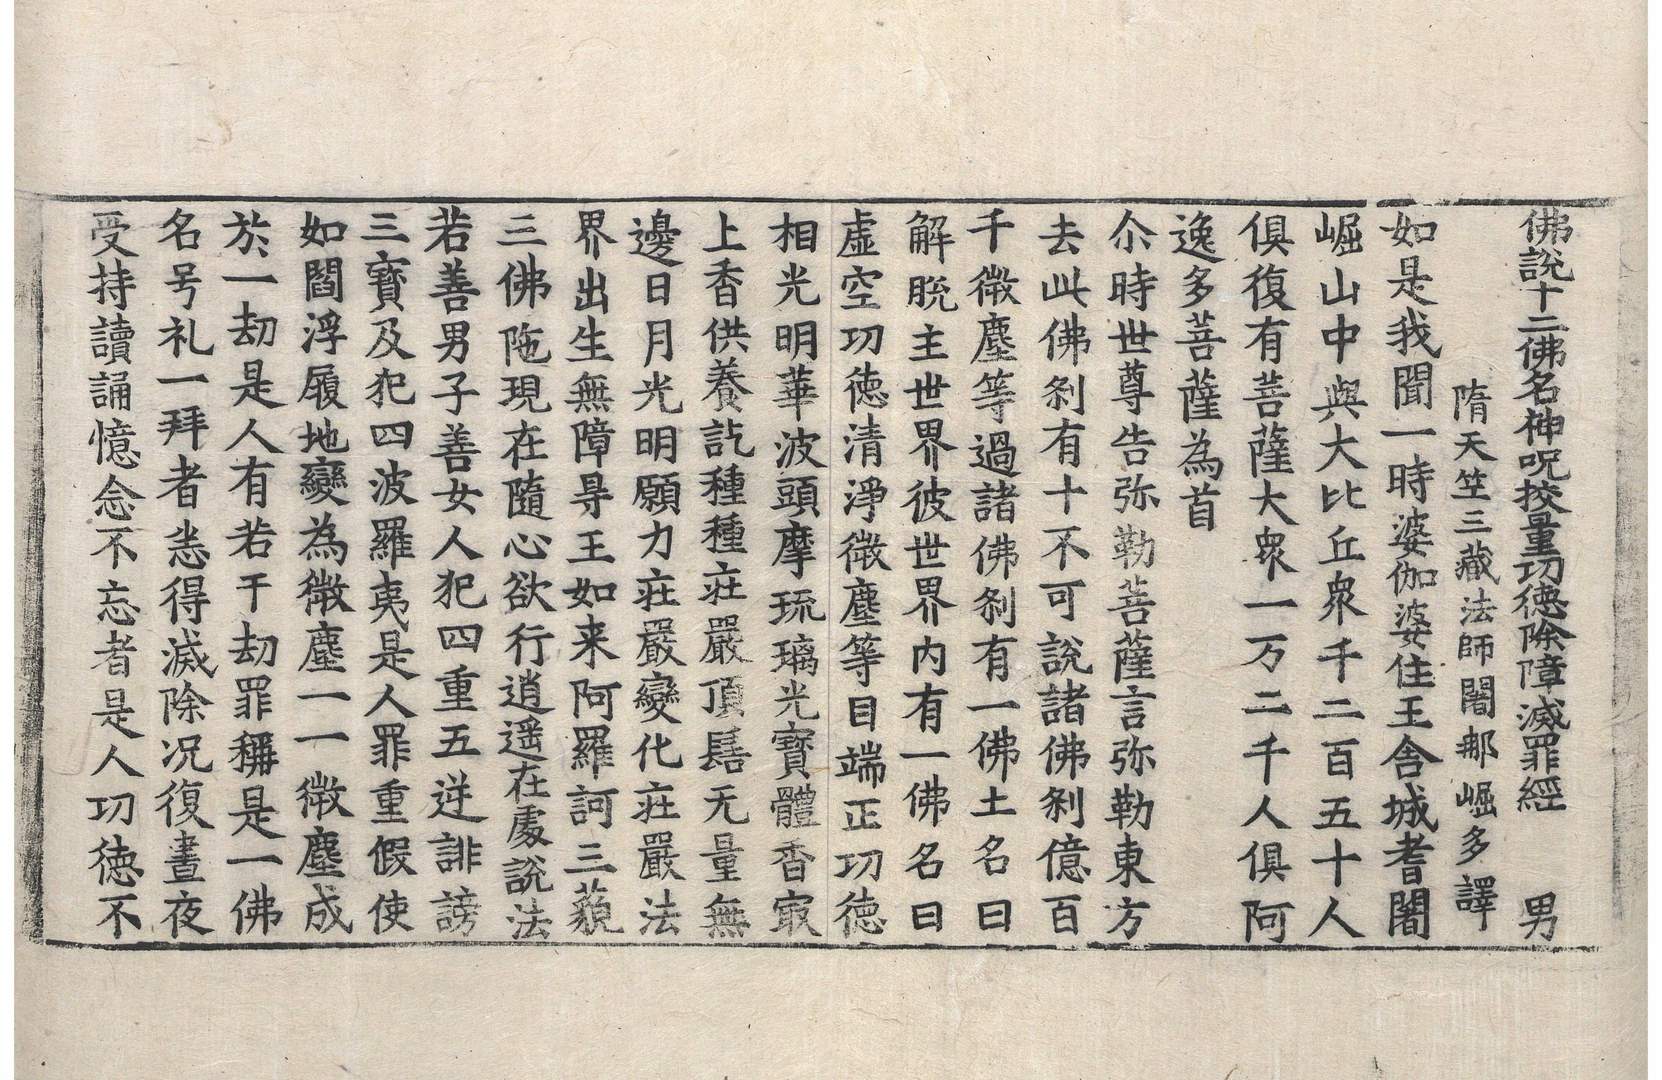 佛說十二佛名神呪挍量功德除障滅罪經　男
隋天竺三藏法師闍那崛多譯
如是我聞一時婆伽婆住王舍城耆闍
崛山中與大比丘衆千二百五十人
俱復有菩薩大衆一万二千人俱阿
逸多菩薩為首
尒時世尊告弥勒菩薩言弥勒東方
去此佛刹有十不可說諸佛刹億百
千微塵等過諸佛刹有一佛土名曰
解脫主世界彼世界内有一佛名曰
虛空功德清淨微塵等目端正功德
相光明華波頭摩琉璃光寶體香㝡
上香供養訖種種莊嚴頂髻无量無
邊日月光明願力莊嚴變化莊嚴法
界出生無障㝵王如来阿羅訶三藐
三佛陁現在隨心欲行逍遥在處說法
若善男子善女人犯四重五逆誹謗
三寶及犯四波羅夷是人罪重假使
如閻浮履地變為微塵一一微塵成
於一劫是人有若干劫罪稱是一佛
名号礼一拜者悉得滅除况復晝夜
受持讀誦憶念不忘者是人功德不